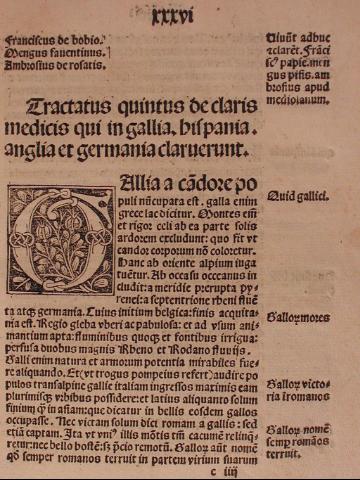 xxxvi
Franciscus de bobio.
Mengus faventinus.
Ambrosius de rosatis.
Uiuũt adhuc
ɿ clarẽt. Frãci
scꝰ papie. men
gus pisis. am
brosius apud
mediolanum.
Tractatus quintus de claris
medicis qui in gallia. hispania.
anglia et germania claruerunt.
GAllia a cãdore po
puli nũcupata est. galla enim
grece lac dicitur. Montes em̃
et rigor celi ab ea parte solis
ardorem excludunt: quo fit vt
candor corporum nõ coloretur.
Hanc ab oriente alpium iuga
tuẽtur. Ab occasu occeanus in
cludit: a meridie prerupta py-
renei: a septentrione rheni fluẽ
ta atqꝫ germania. Cuius initium belgica: finis acquita-
nia est. Regio gleba vberi ac pabulosa: et ad vsum ani-
mantium apta: fluminibus quoqꝫ et fontibus irrigua:
perfusa duobus magnis Rheno et Rodano fluvijs.
Galli enim natura et armorum potentia mirabiles fue-
re aliquando. Et (vt trogus pompeius refert) audire po
pulos transalpine gallie italiam ingressos maximis eam
plurimisqꝫ vrbibus possidere: et latius aliquanto solum
finium qꝫ in astiam: que dicatur in bellis eosdem gallos
occupasse. Nec victam solum dici romam a gallis: sed
etiã captam. Ita vt vniꝰ illis mõtis tm̃ cacumẽ relinq̃-
retur: nec bello hostẽ: sꝫ p̃cio remotũ. Galloꝝ aũt nomẽ
qđ semper romanos terruit in partem virium suarum
c iiij
Quid gallici.
Galloꝝ mores
Galloꝝ victo-
ria ɿ romanos
Galloꝝ nomẽ
semꝑ romãos
terruit.